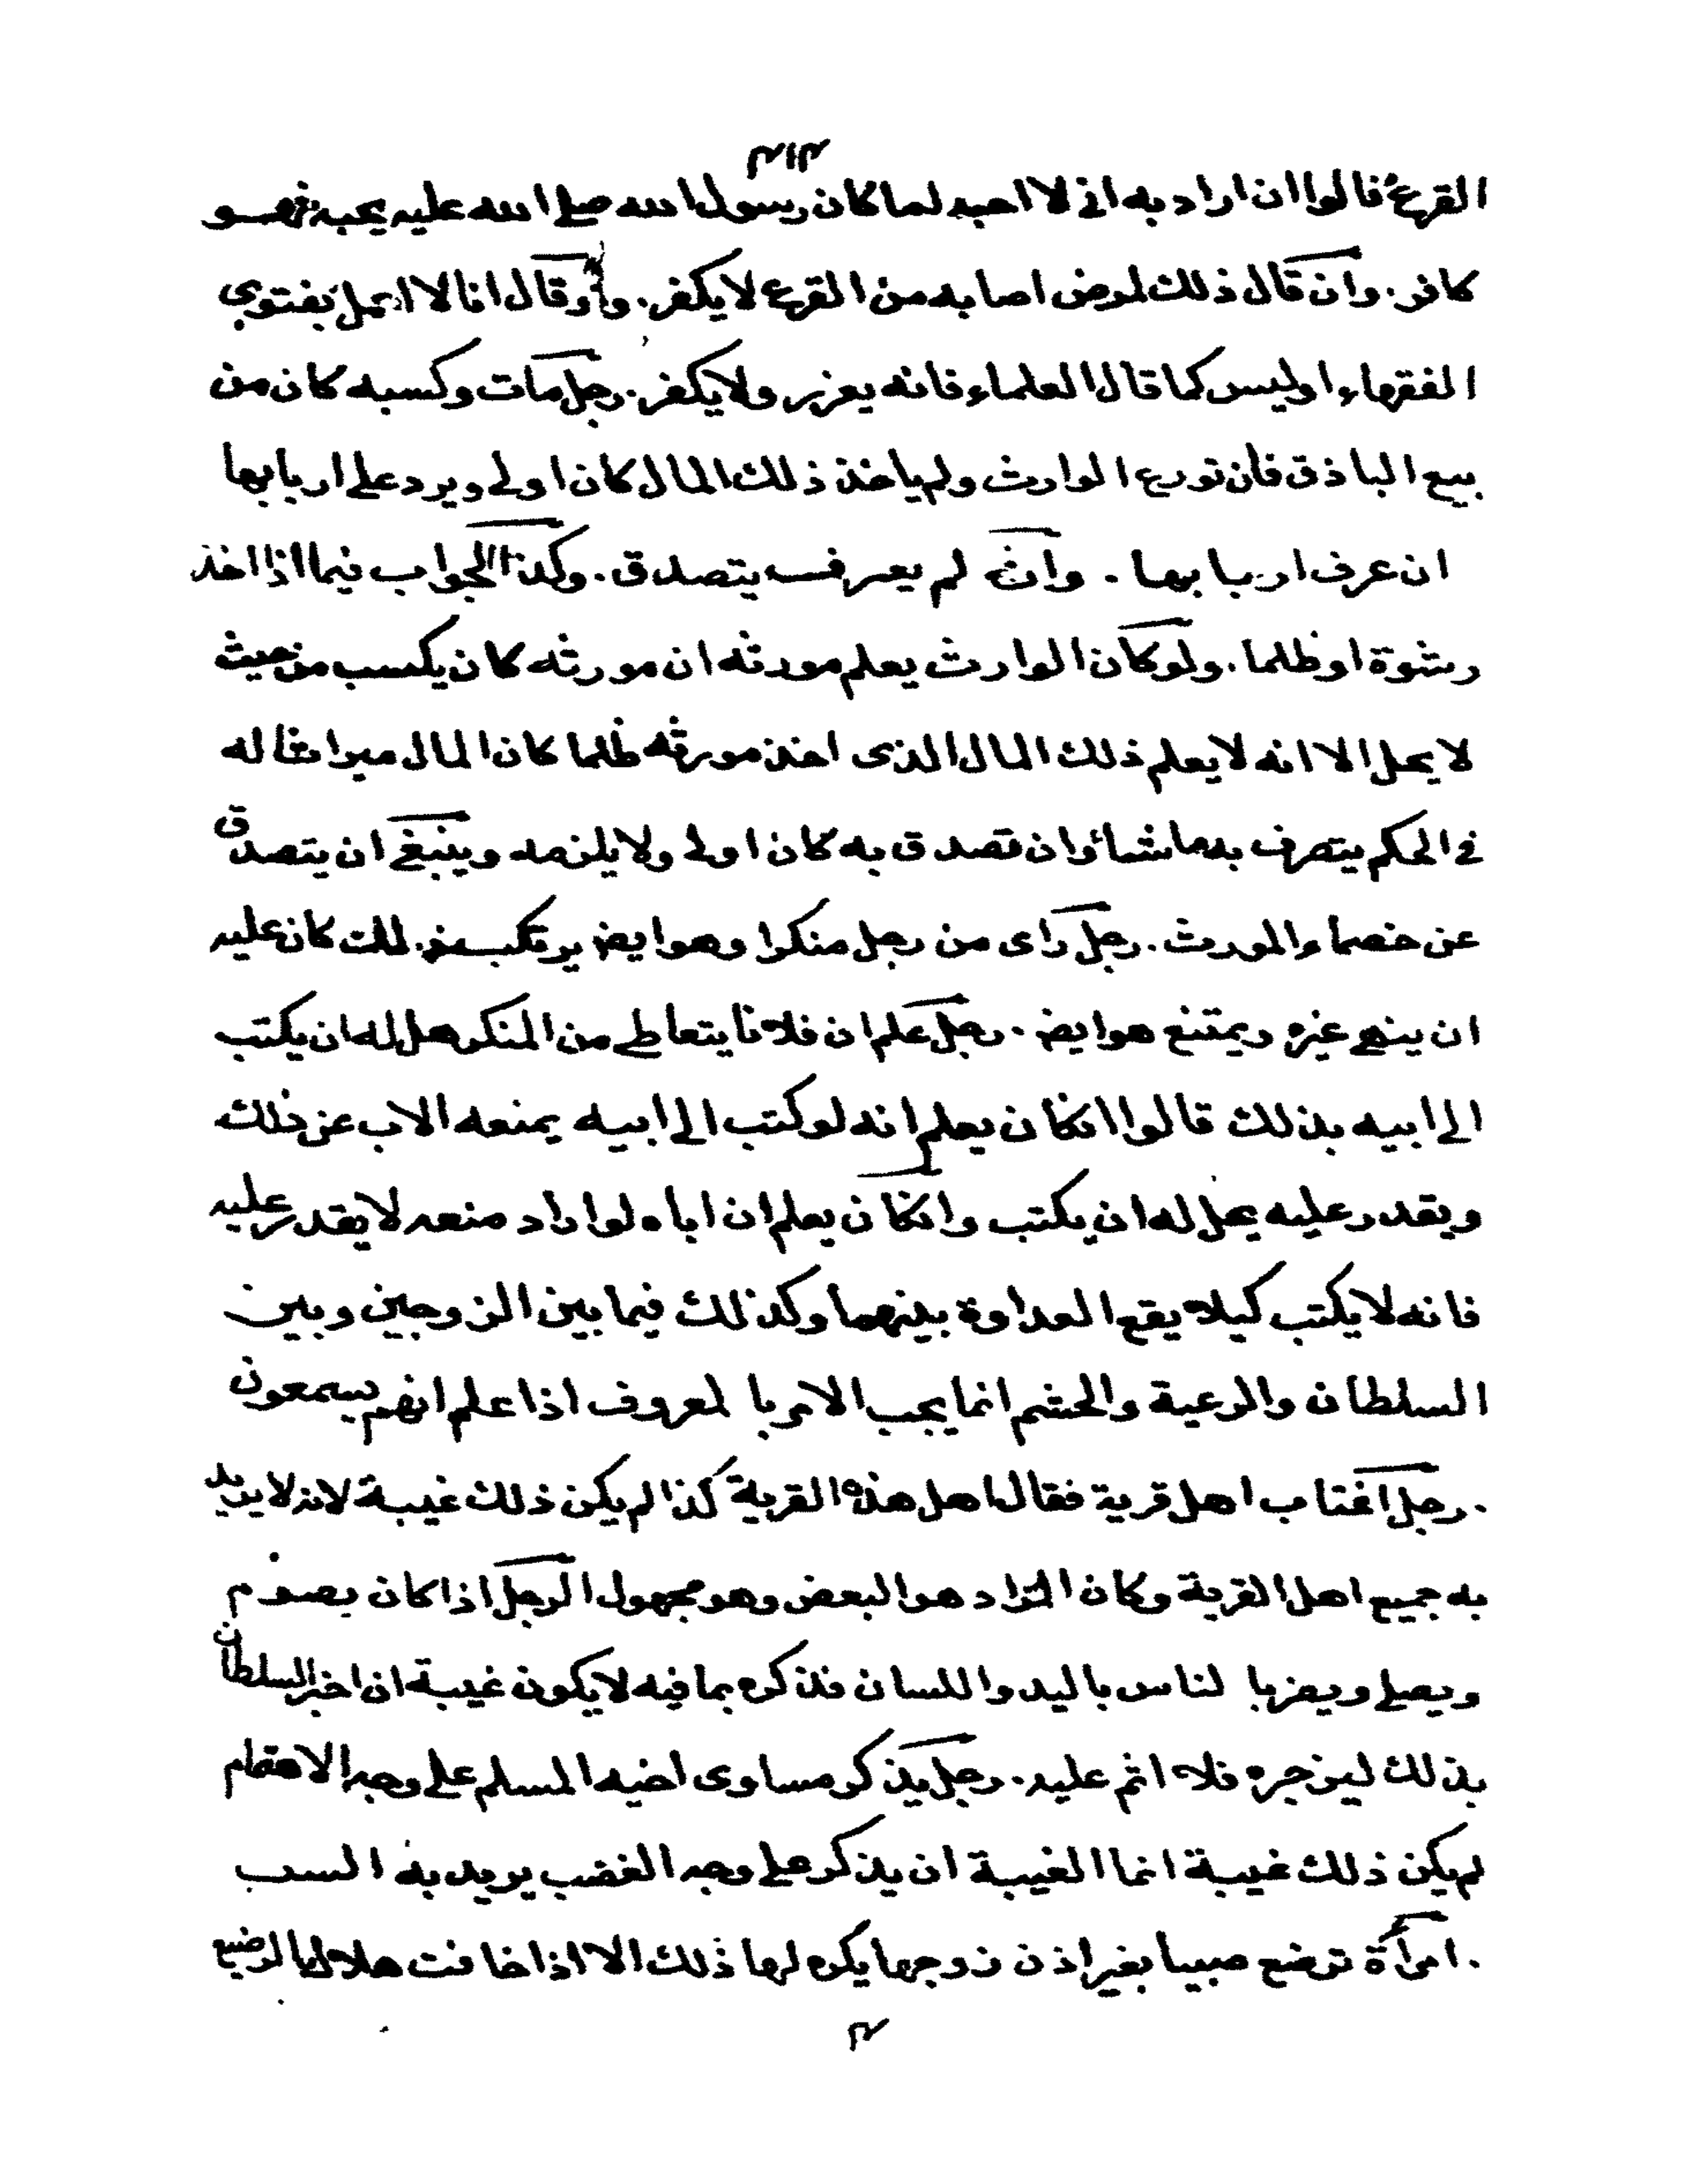 القرع قالوا ان اراد به انى لا احبه لما كان رسول الله صلى الله عليه يحبه فهو
كافر. وان قال ذلك لمرض اصابه من القرع لا يكفر. ولو قال انا لا اعمل بفتوى
الفقهاء اوليس كما قال العلماء فانه يعزر ولا يكفر. رجل مات وكسبه كان من
بيع الباذق فأن تورع الوارث ولم ياخذ ذلك المال كان اولى ويرد على اربابها
ان عرف اربابها. وان لم يعرف يتصدق. وكذا الجواب فيما اذا اخذ
رشوة او ظلما. ولو كان الوارث يعلم مورثه ان مورثه كان يكسب من حيث
لا يحل الا انه لا يعلم ذلك المال الذى اخذ مورثه ظلما كان المال ميراثا له
فى الحكم يتصرف به ما شاء وان تصدق به كان اولى ولا يلزمه وينبغى ان يتصدق
عن خصماء المورث. رجل راى من رجل منكرا وهو ايضا يرتكب كان عليه
ان ينهى غيره ويمتنع هو ايضا. رجل علم ان فلانا يتعاطى من المنكر هل له ان يكتب
الى ابيه بذلك قالوا انكان يعلم انه لو كتب الى ابيه يمنعه الاب عن ذلك
ويقدر عليه يحل له ان يكتب وانكان يعلم ان اباه لو اراد منعه لا يقدر عليه
فانه لا يكتب كيلا يقع العداوة بينهما وكذلك فيما بين الزوجين وبين
السلطان والرعية والحشم انما يجب الامر بالمعروف اذا علم انهم يسمعون
. رجل اغتاب اهل قرية فقال اهل هذه القرية كذا لم يكن ذلك غيبة لانه لا يريد
به جميع اهل القرية وكان المراد هو البعض وهو مجهول الرجل اذا كان يصوم
ويصلى ويضر بالناس باليد واللسان فذكره بما فيه لا يكون غيبة ان اخبر السلطان
بذلك ليزجره فلا اثم عليه. رجل يذكر مساوى اخيه المسلم على وجه الاهتمام
لم يكن ذلك غيبة انما الغيبة ان يذكر على وجه الغضب يريد به السب
. امرأة ترضع صبيا بغير اذن زوجها يكره لها ذلك الا اذا خافت هلاك الرضيع